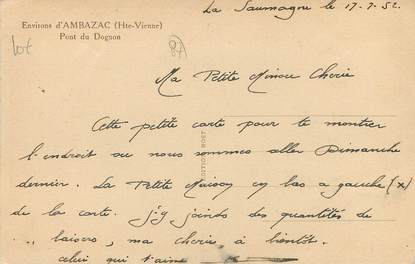 La Saumagne le 17.7.52
Environs d'AMBAZAC (Hte-Vienne)
Pont du Dognon
lot
87
Ma Petite Minou Cherie
Cette petite carte pour te montrer
l'endroit ou nous sommes aller Dimanche
dernier. La Petite Maison en bas a gauche (x)
de la carte. j-y joinds des quantités de
" baisers, ma cherie à bientôt.
celui qui t'aime
EDITIONS NOST